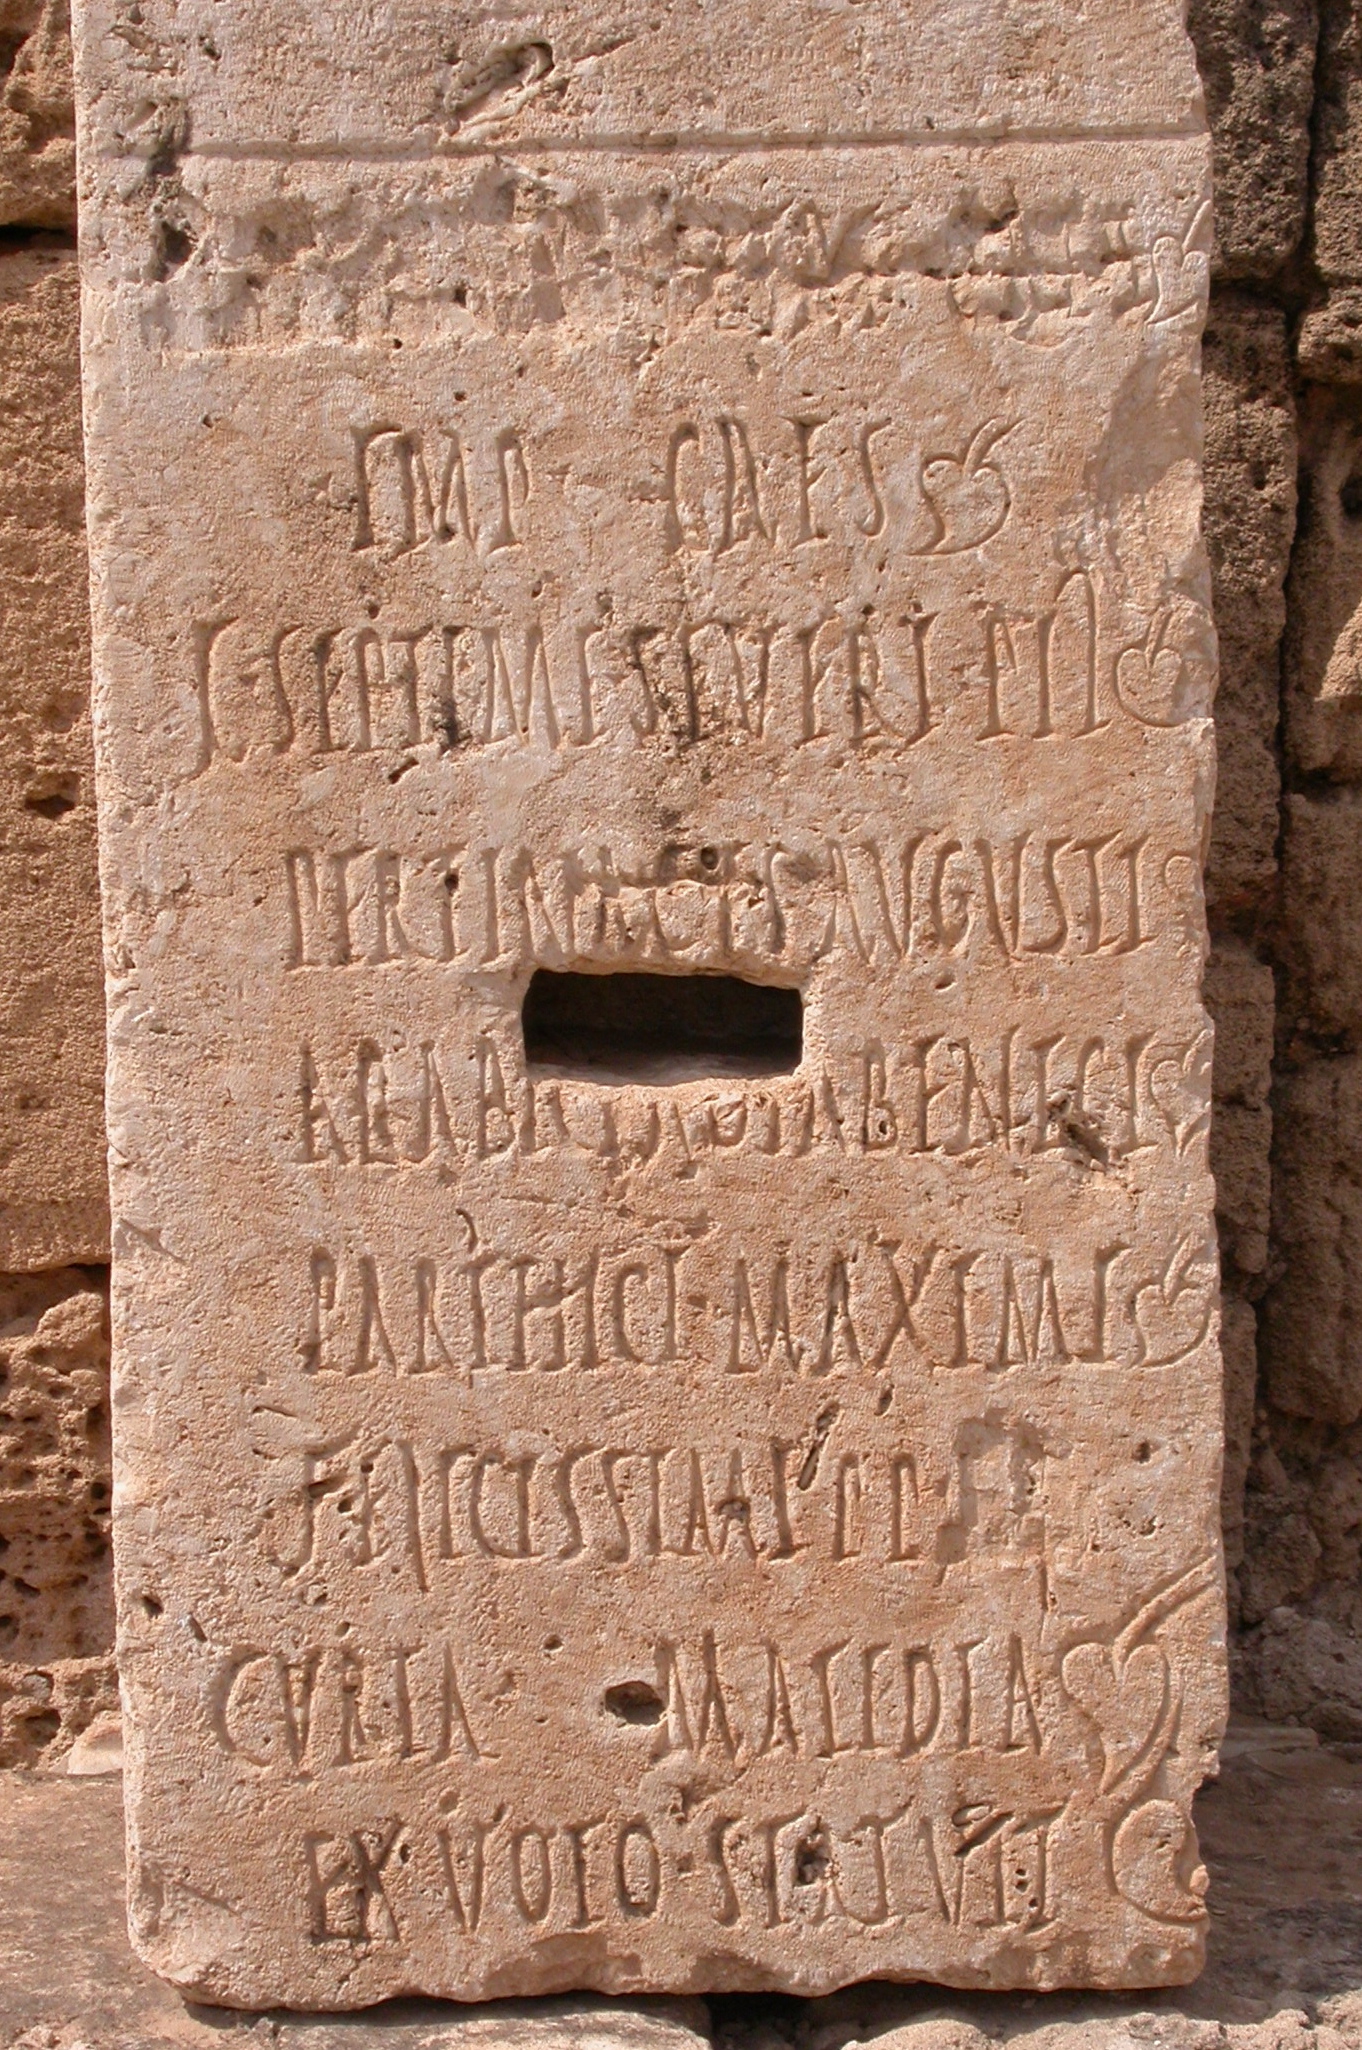 IMP CAES ❧
L SEPTIMI SEVERI PII ❧
PERTINACIS AVGVSTI ❧
ARABICI ADIABENICI ❧
PARTHICI MAXIMI ❧
FELICISSIMI P P
CVRIA MA LEDIA ❧
EX VOTO STATVIT ❧